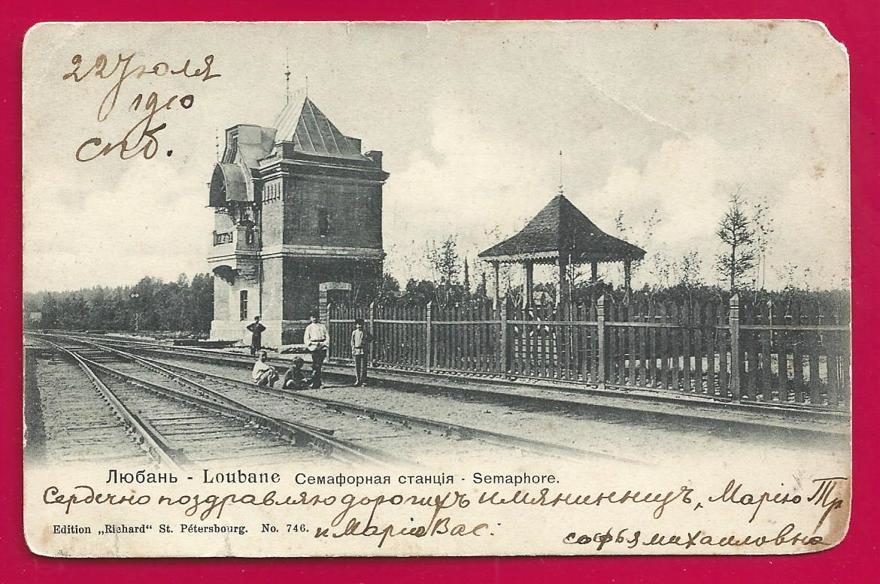 22 Июля
1910
Спб.
Любань - Loubane Семафорная станція - Semaphore.
Сердечно поздравляю дорогихъ имянинницъ, Марію Тр
Edition „Richard“ St. Pétersbourg. No. 746.
и Марію Вас:
Софья Михайловна